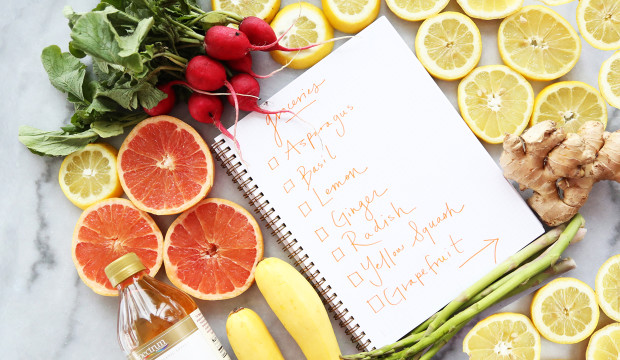 groceries
☐ Asparagus
☐ Basil
☐ Lemon
☐ Ginger
☐ Radish
☐ Yellow Squash
☐ Grapefruit →
spectrum